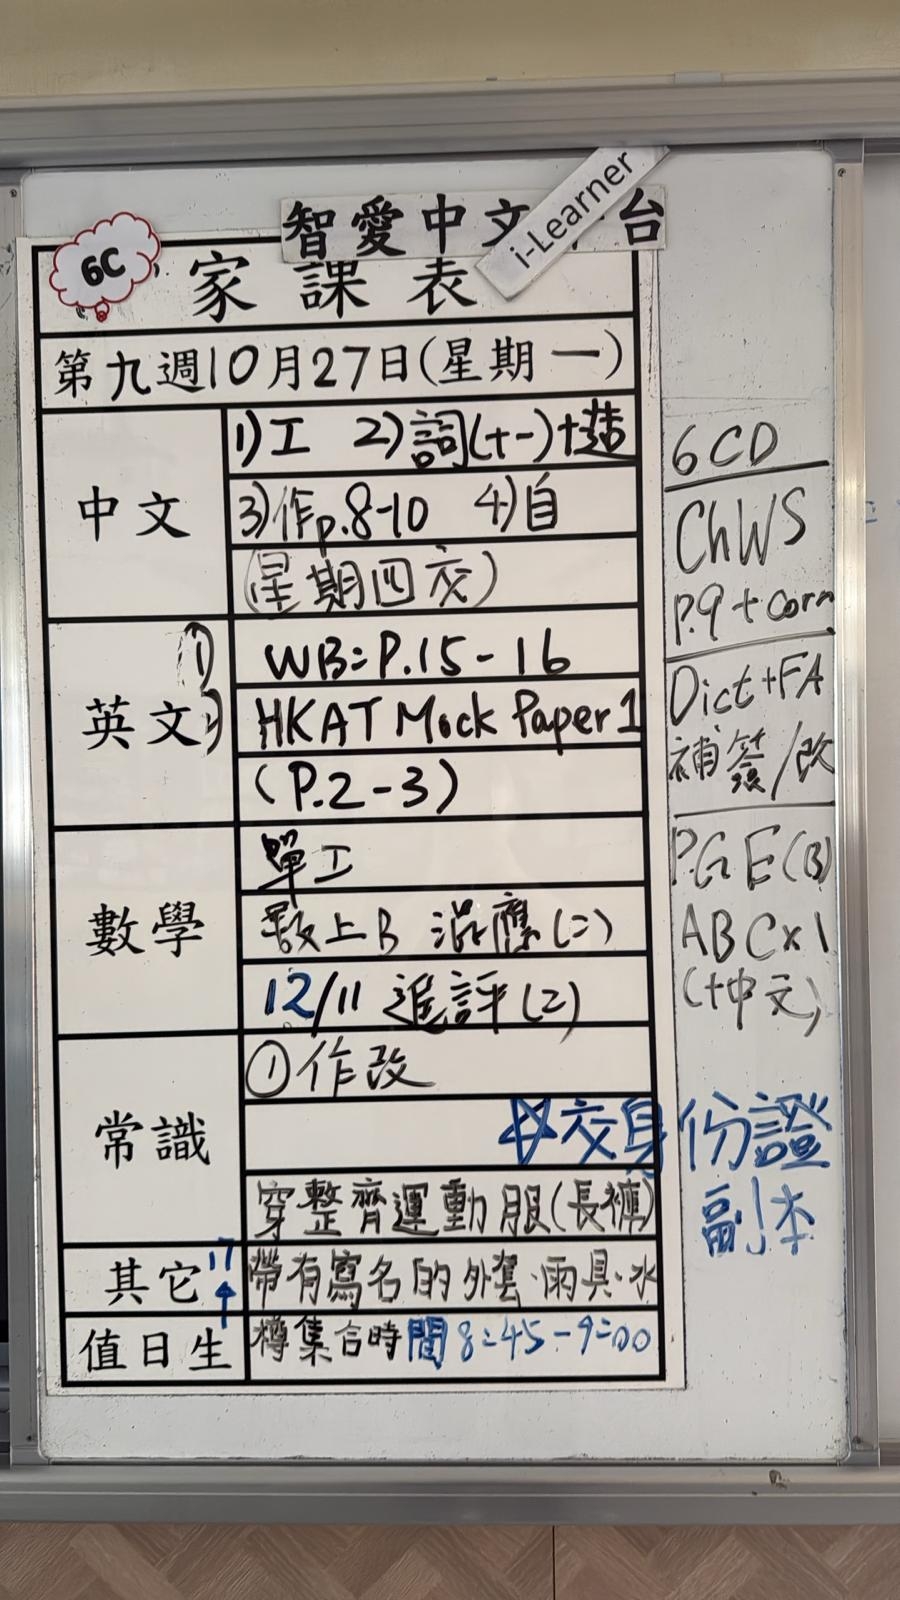 智愛中文 台
i-Learner
6C
家課表
第九週10月27日(星期一)
中文
1)工 2)詞(十一)+造
3)作p.8-10 4)自
(星期四交)
英文
1) WB:P.15-16
2) HKAT Mock Paper 1
(P.2-3)
數學
單工
數上B 混應(二)
12/11 進評(二)
常識
①作改
☆交身份證
副本
穿整齊運動服(長褲)
其它
17
↑
帶有寫名的外套·雨具·水
值日生
樽集合時間8:45-9:00
6CD
ChWS
P.9+corr
Dict+FA
補簽/改
P.G E(B)
ABC×1
(+中文)